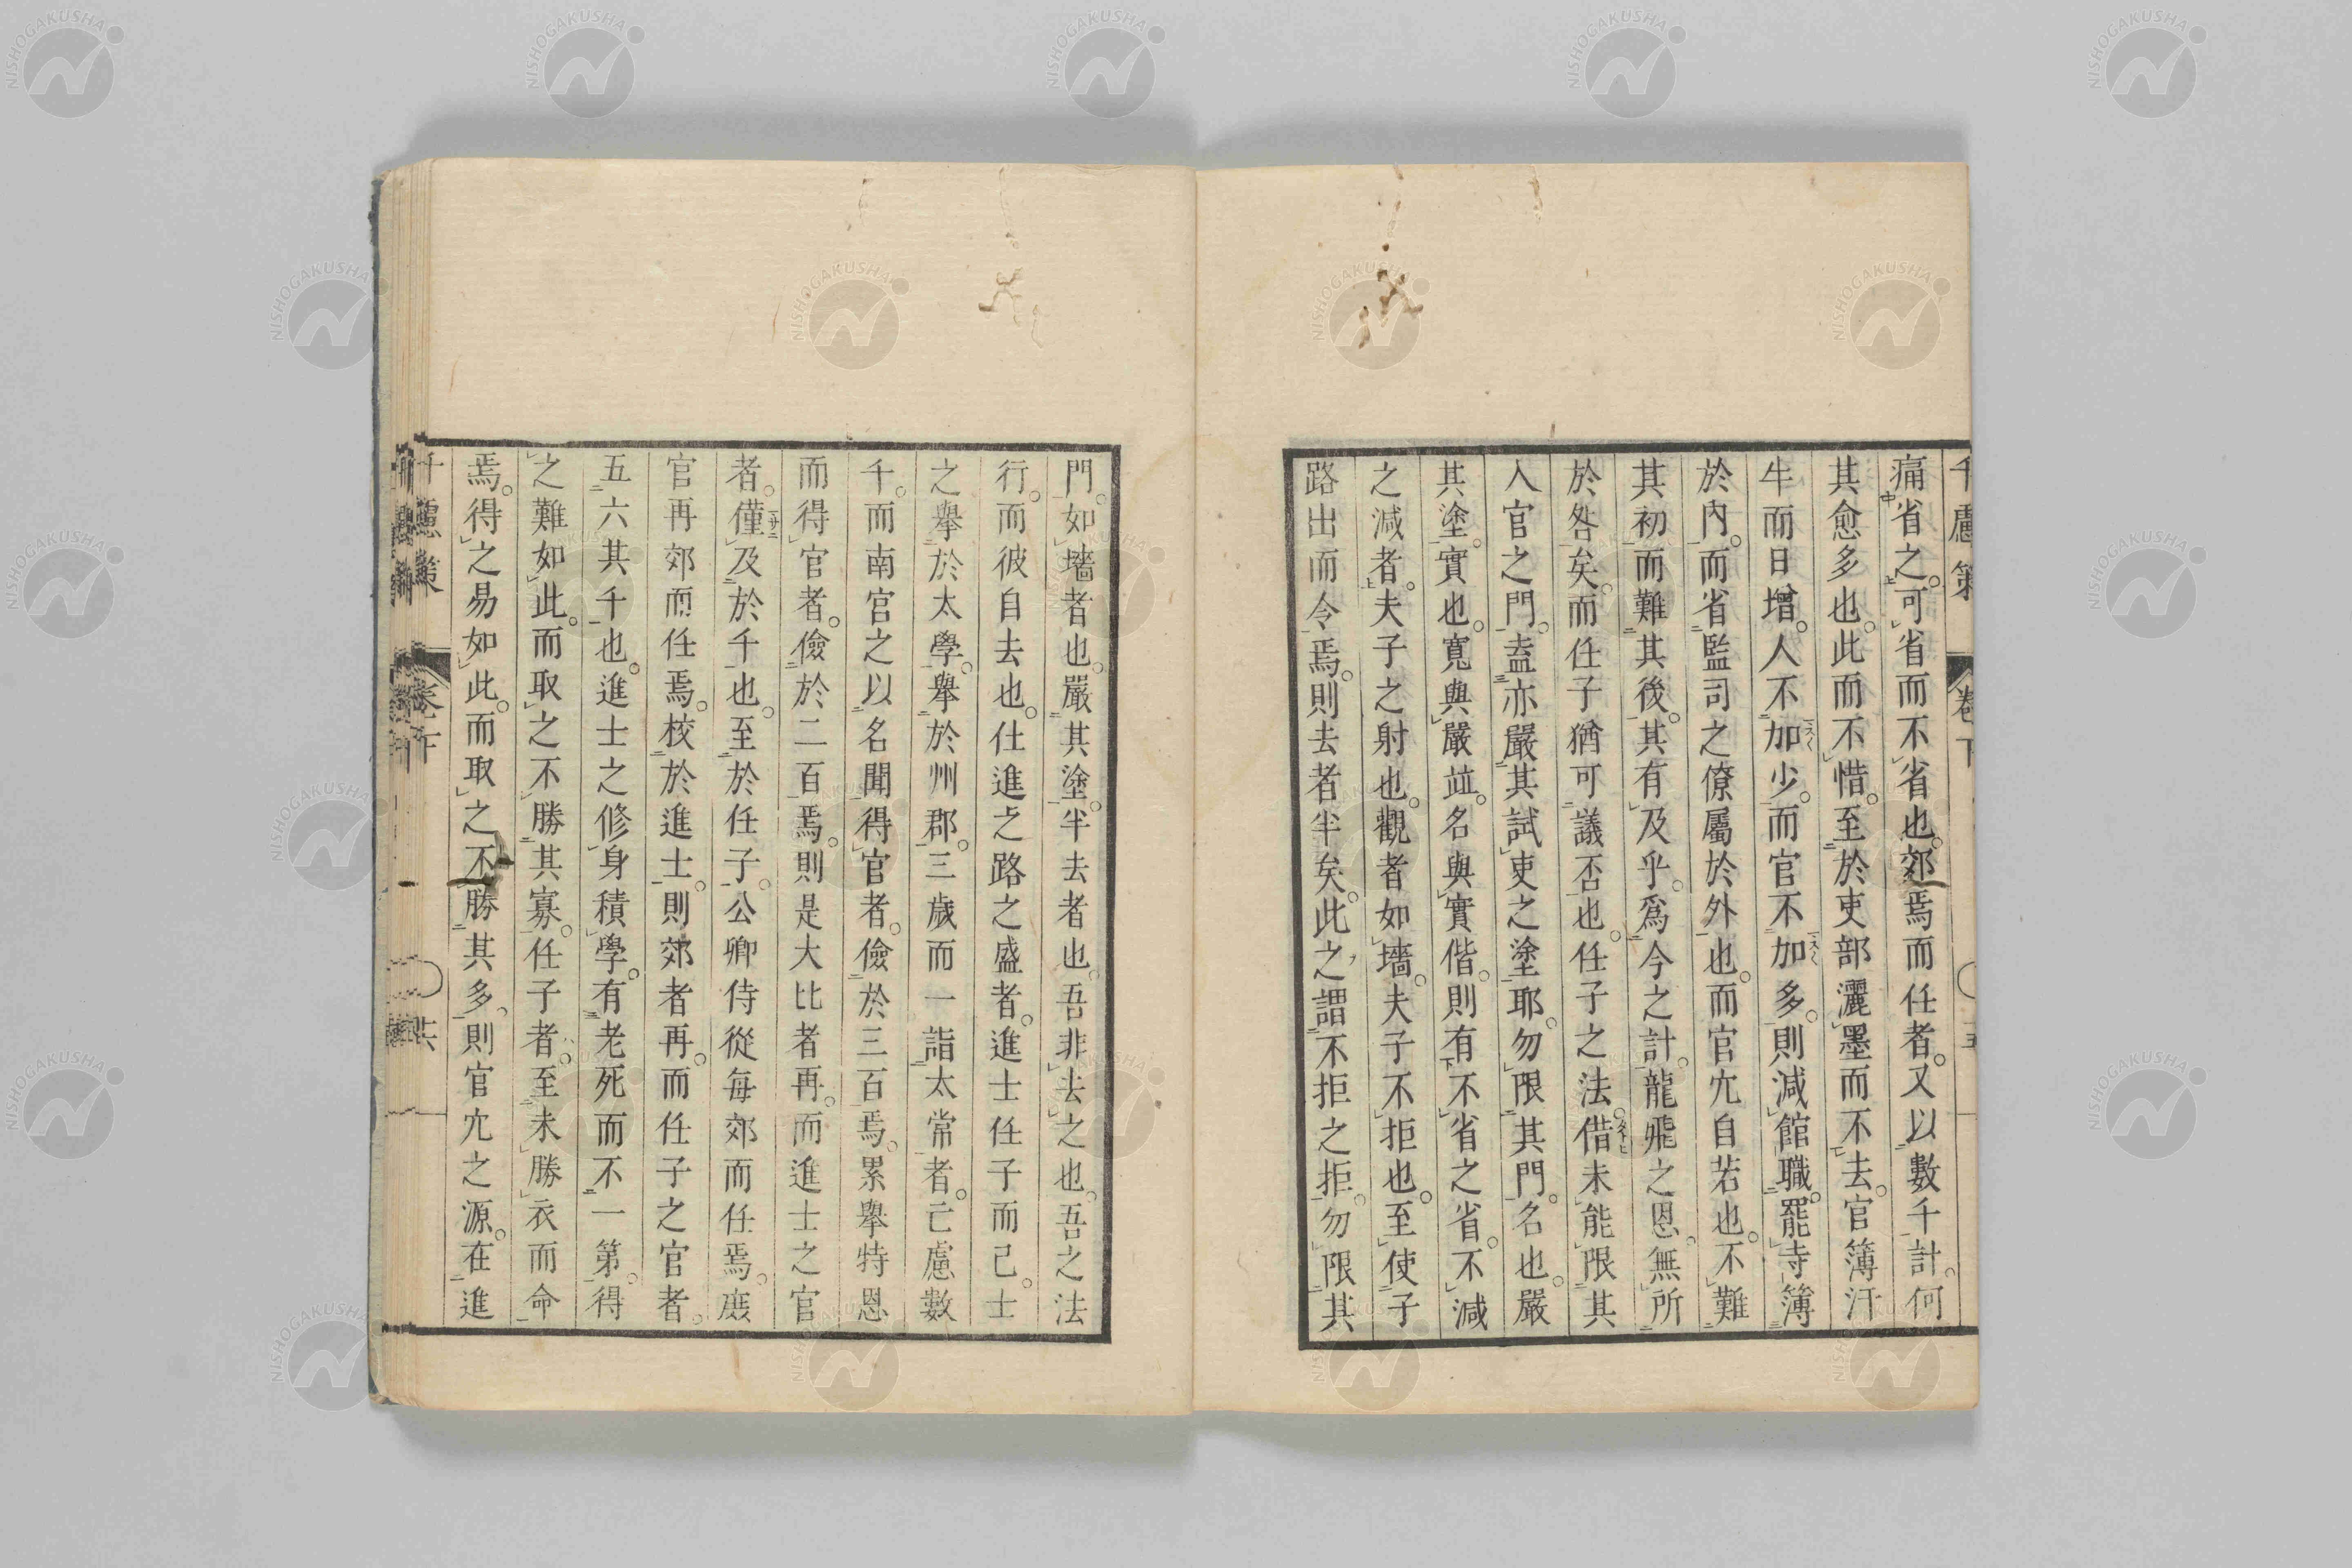 千慮策 卷下
痛省之。可省而不省也。郊焉而任者。又以數千計。何
其愈多也。此而不惜。至於吏部灑墨而不去。官簿汗
牛而日增。人不加少。而官不加多。則減館職。罷寺簿
於內。而省監司之僚屬於外也。而官冗自若也。不難
其初。而難其後。其有及乎。爲今之計。龍飛之恩。無所
於咎矣。而任子猶可議否也。任子之法。借未能限其
入官之門。盍亦嚴其試吏之塗耶。勿限其門。名也。嚴
其塗。實也。寬與嚴並。名與實偕。則有不省之省。不減
之減者。夫子之射也。觀者如墻。夫子不拒也。至使子
路出而令焉。則去者半矣。此之謂不拒之拒。勿限其
門。如墻者也。嚴其塗。半去者也。吾非去之也。吾之法
行。而彼自去也。仕進之路之盛者。進士任子而已。士
之舉於太學。舉於州郡。三歲而一詣太常者。亡慮數
千。而南官之以名聞得官者。儉於三百焉。累舉特恩
而得官者。儉於二百焉。則是大比者再。而進士之官
者。僅及於千也。至於任子。公卿侍從每郊而任焉。庶
官再郊而任焉。校於進士。則郊者再。而任子之官者。
五六其千也。進士之修身積學。有老死而不一第。得
之難如此。而取之不勝其寡。任子者。至未勝衣而命
焉。得之易如此。而取之不勝其多。則官冗之源。在進
千慮策 卷下
NISHOGAKUSHA